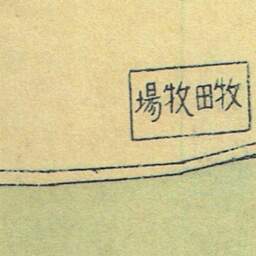 牧田牧場